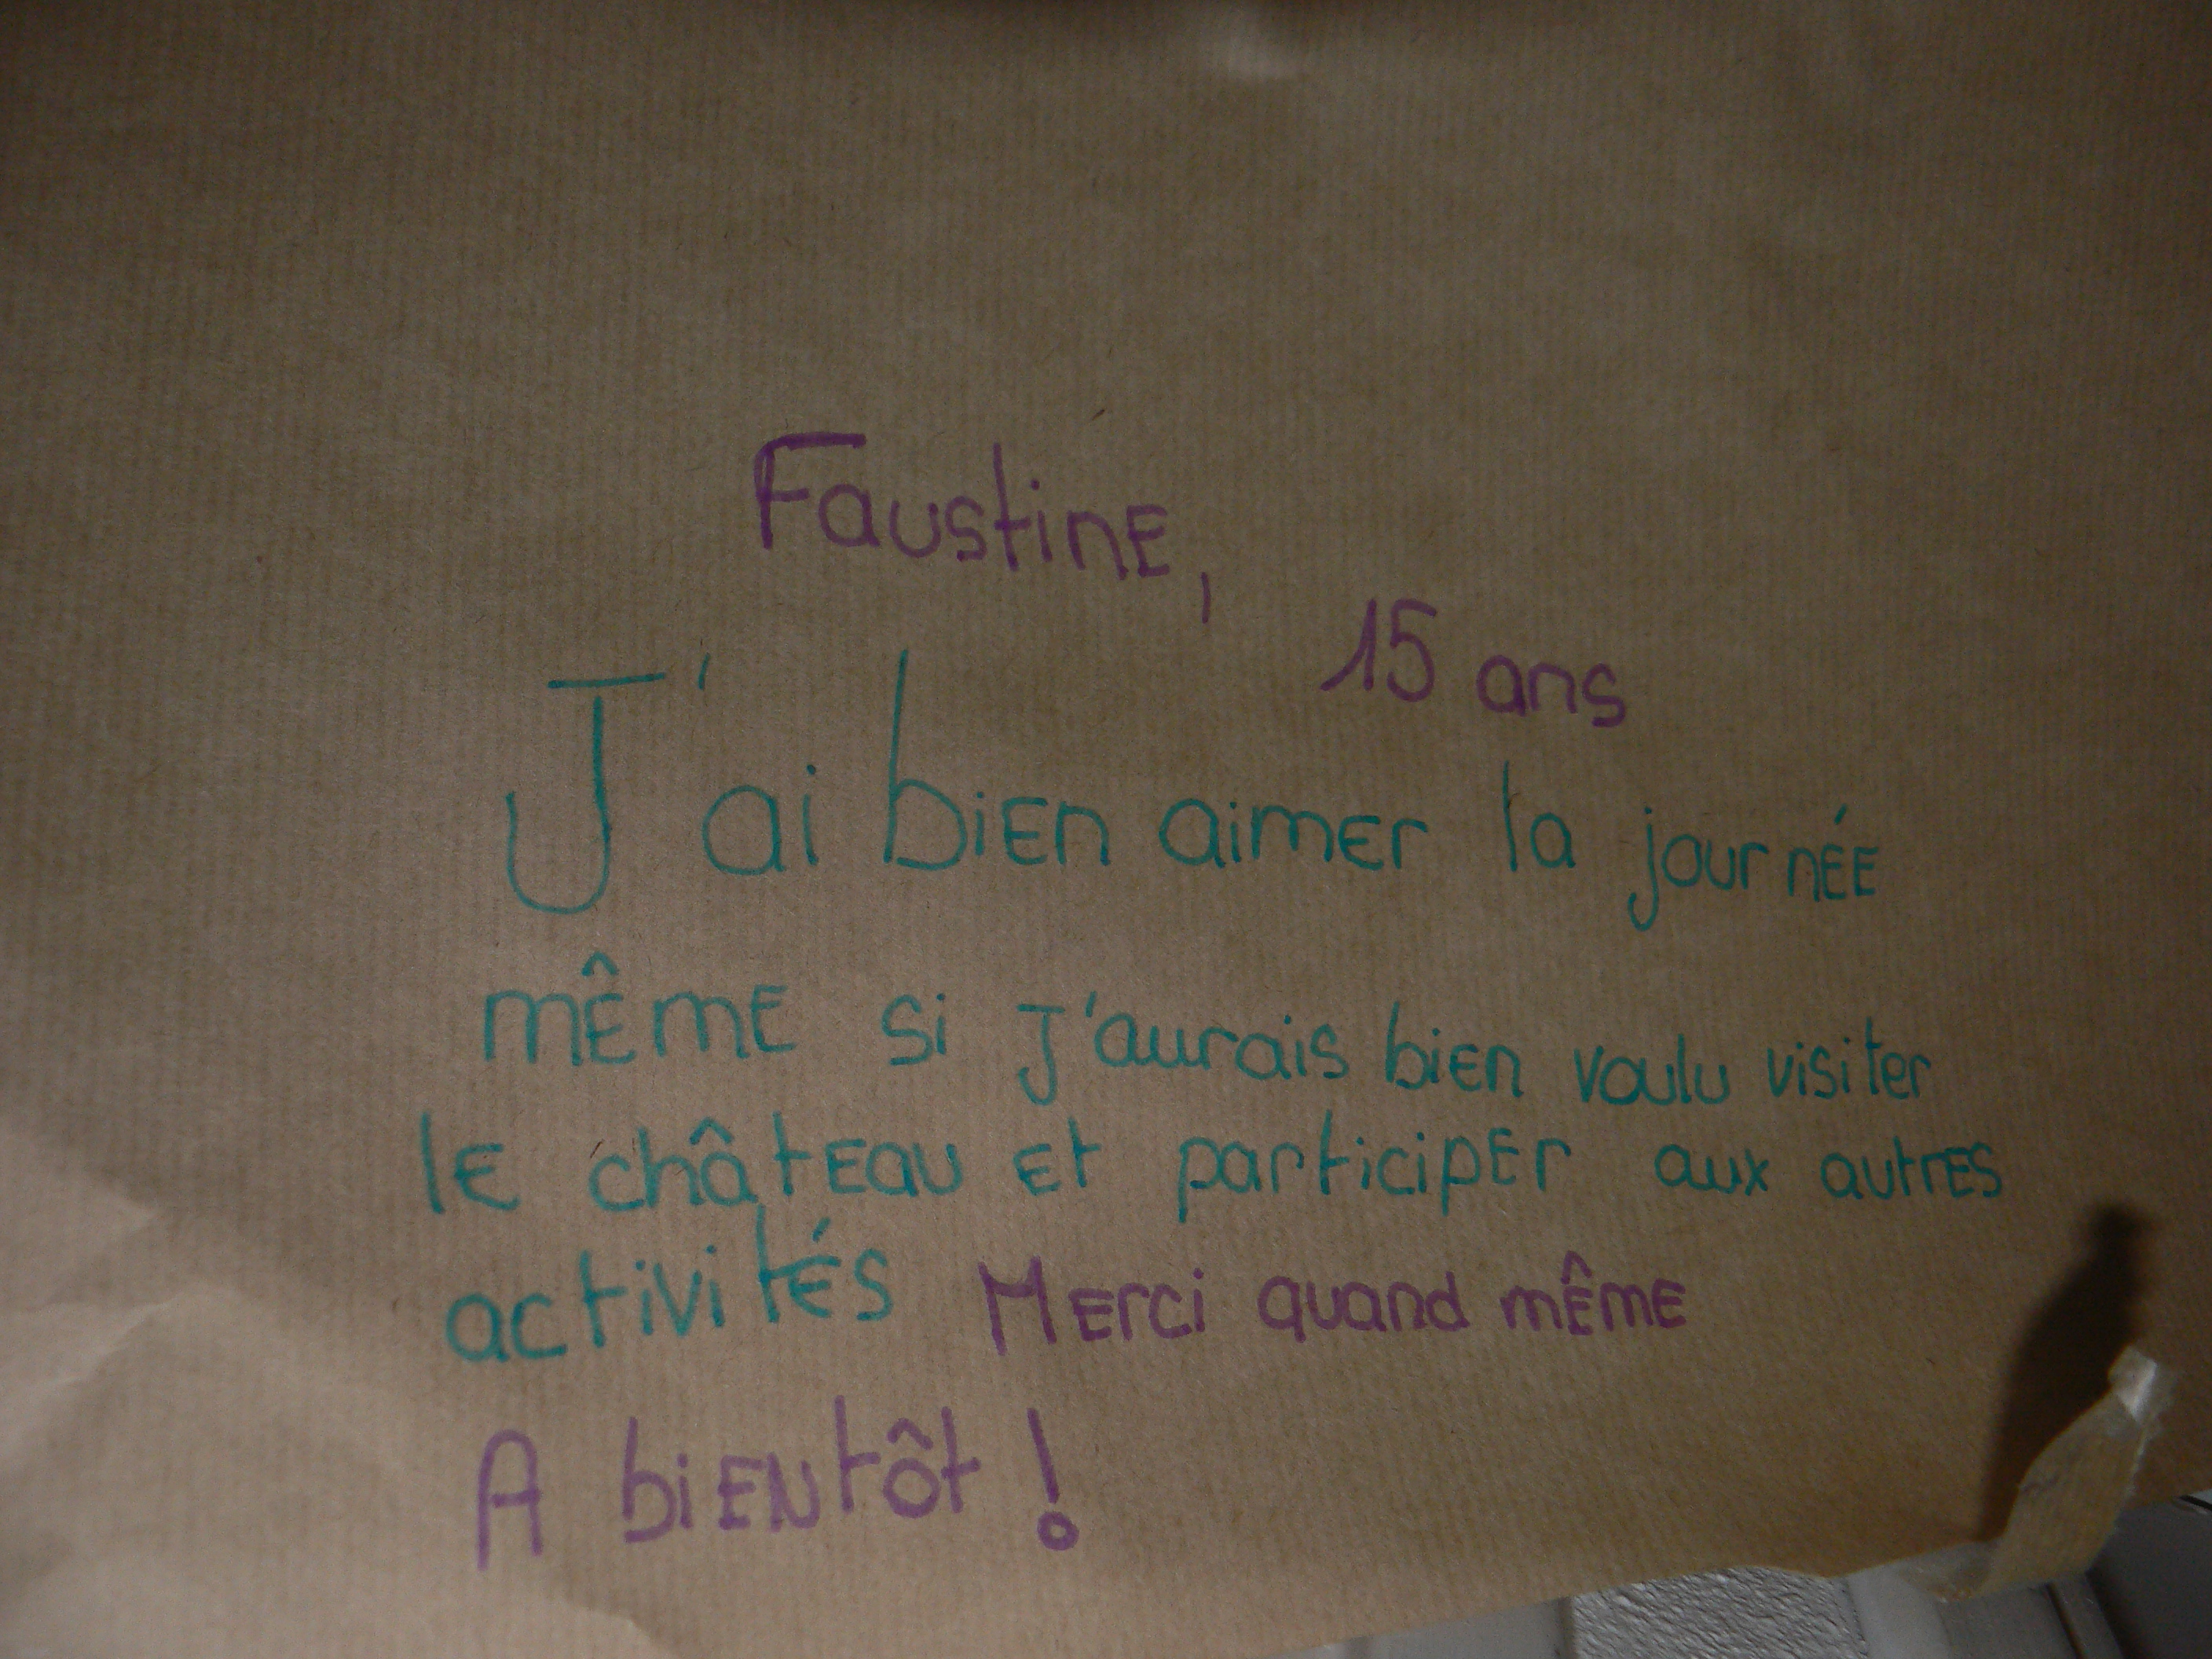 Faustine,
15 ans
J'ai bien aimer la journée
même si j'aurais bien voulu visiter
le château et participer aux autres
activités Merci quand même
A bientôt !